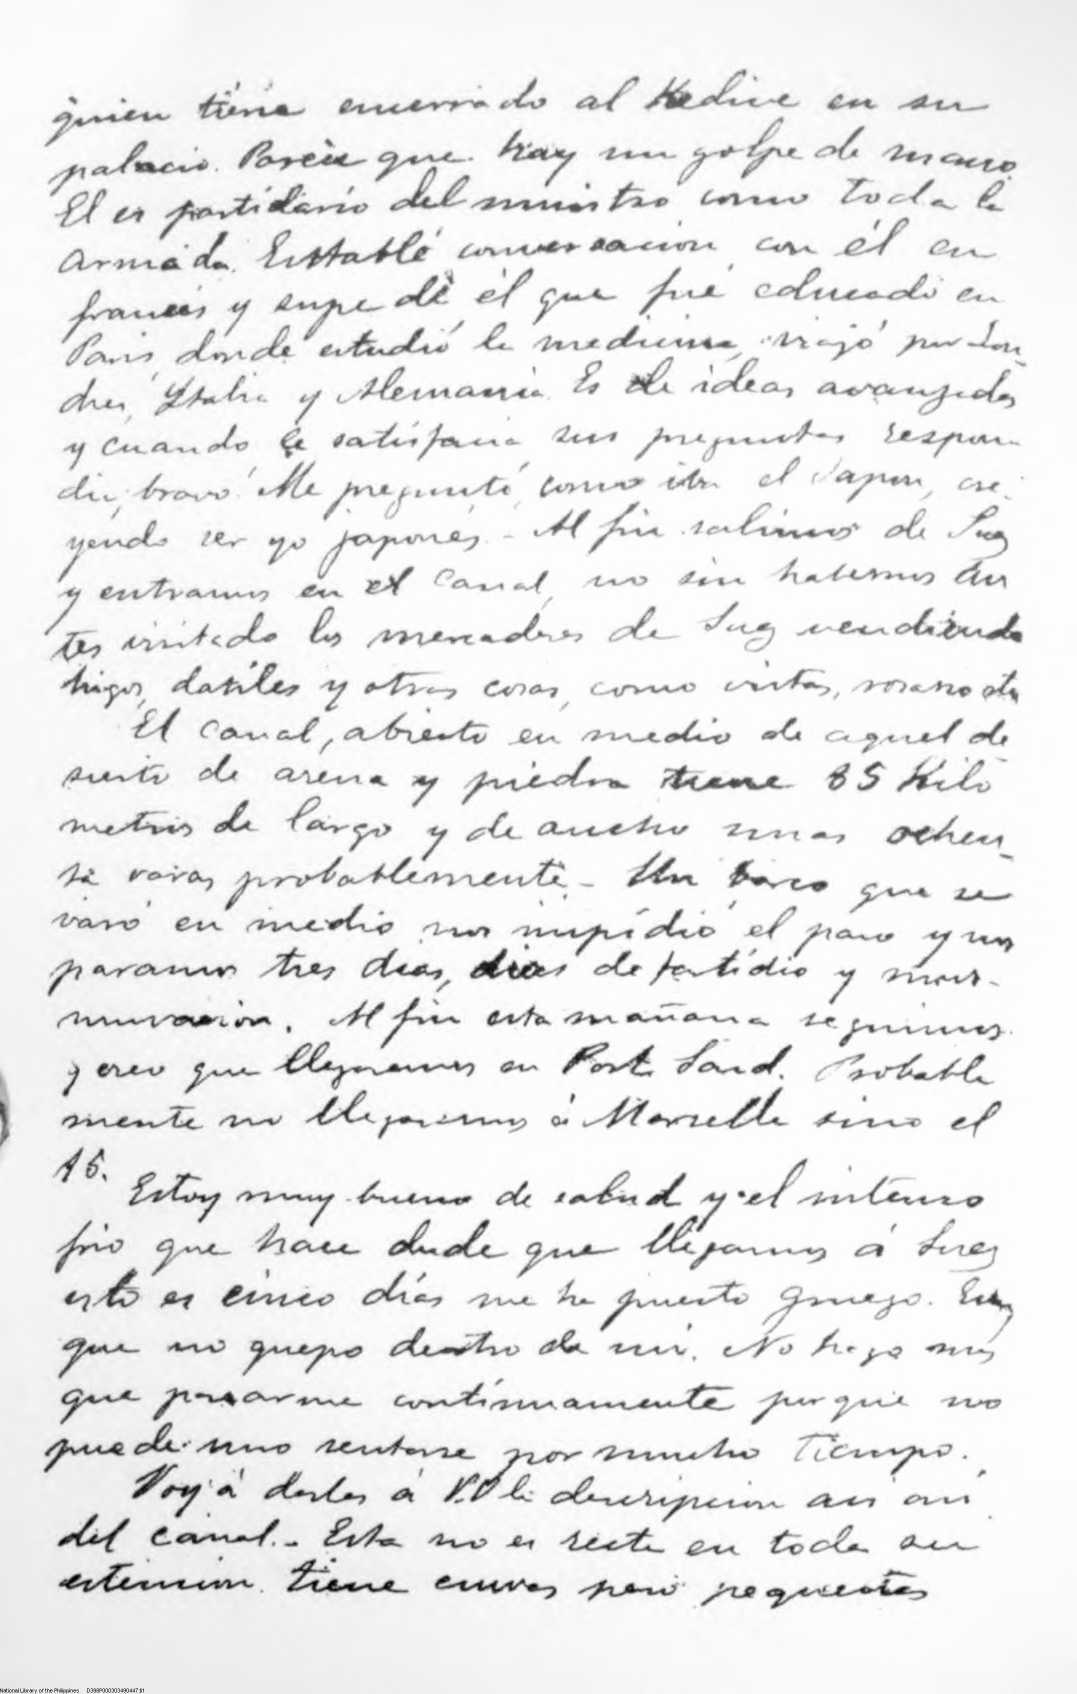 quien tiene encerrado al Kedive en su
palacio. Parece que hay un golpe de mano.
El es partidario del ministro como toda la
armada. Entablé conversacion con él en
francés y supe de él que fué educado en
Paris, donde estudió la medicina, viajó por Lon-
dres, Ytalia y Alemania. Es de ideas avanzadas
y cuando le satisfacia sus preguntas respon-
dia, bravo! Me preguntó, como iba el Japon, cre-
yendo ser yo japonés. - Al fin salimos de Suez
y entramos en el canal, no sin habernos an
tes visitado los mercaderes de Suez vendiendo
higos, datiles y otras cosas, como vistas, rosario etc
El canal, abierto en medio de aquel de
sierto de arena y piedra tiene 85 Kiló
metros de largo y de ancho unas ochen-
ta varas probablemente. - Un barco que se
varó en medio nos impidió el paso y nos
paramos tres dias, dias de fastidio y mur-
muracion. Al fin esta mañana seguimos
y creo que llegaremos en Port Said. Probable
mente no llegaremos á Marselle sino el
15.
Estoy muy bueno de salud y el intenso
frio que hace desde que llegamos á Suez
esto es cinco días me ha puesto grueso. Creo
que no quepo dentro de mi. No hago mas
que pasearme contínuamente porque no
puede uno sentarse por mucho tiempo.
Voy á darles á V.V la descripcion asi asi
del canal. - Esta no es recta en toda su
estension. tiene curvas pero pequeñas
National Library of the Philippines D398P000303490447.tif